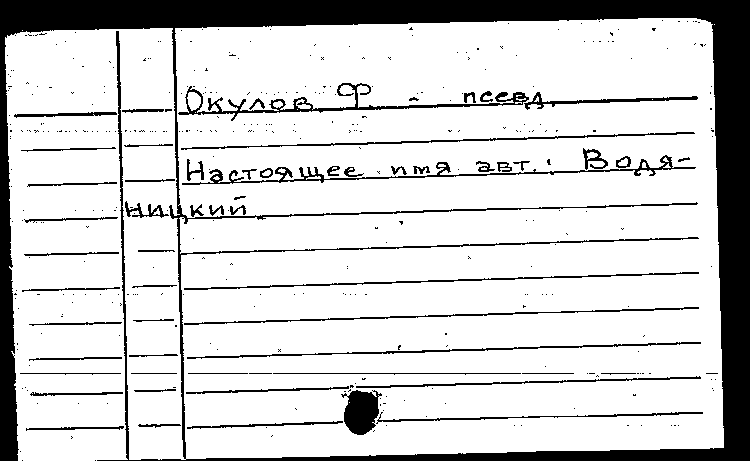 Окулов Ф. - псевд.
Настоящее имя авт.: Водя-
ницкий